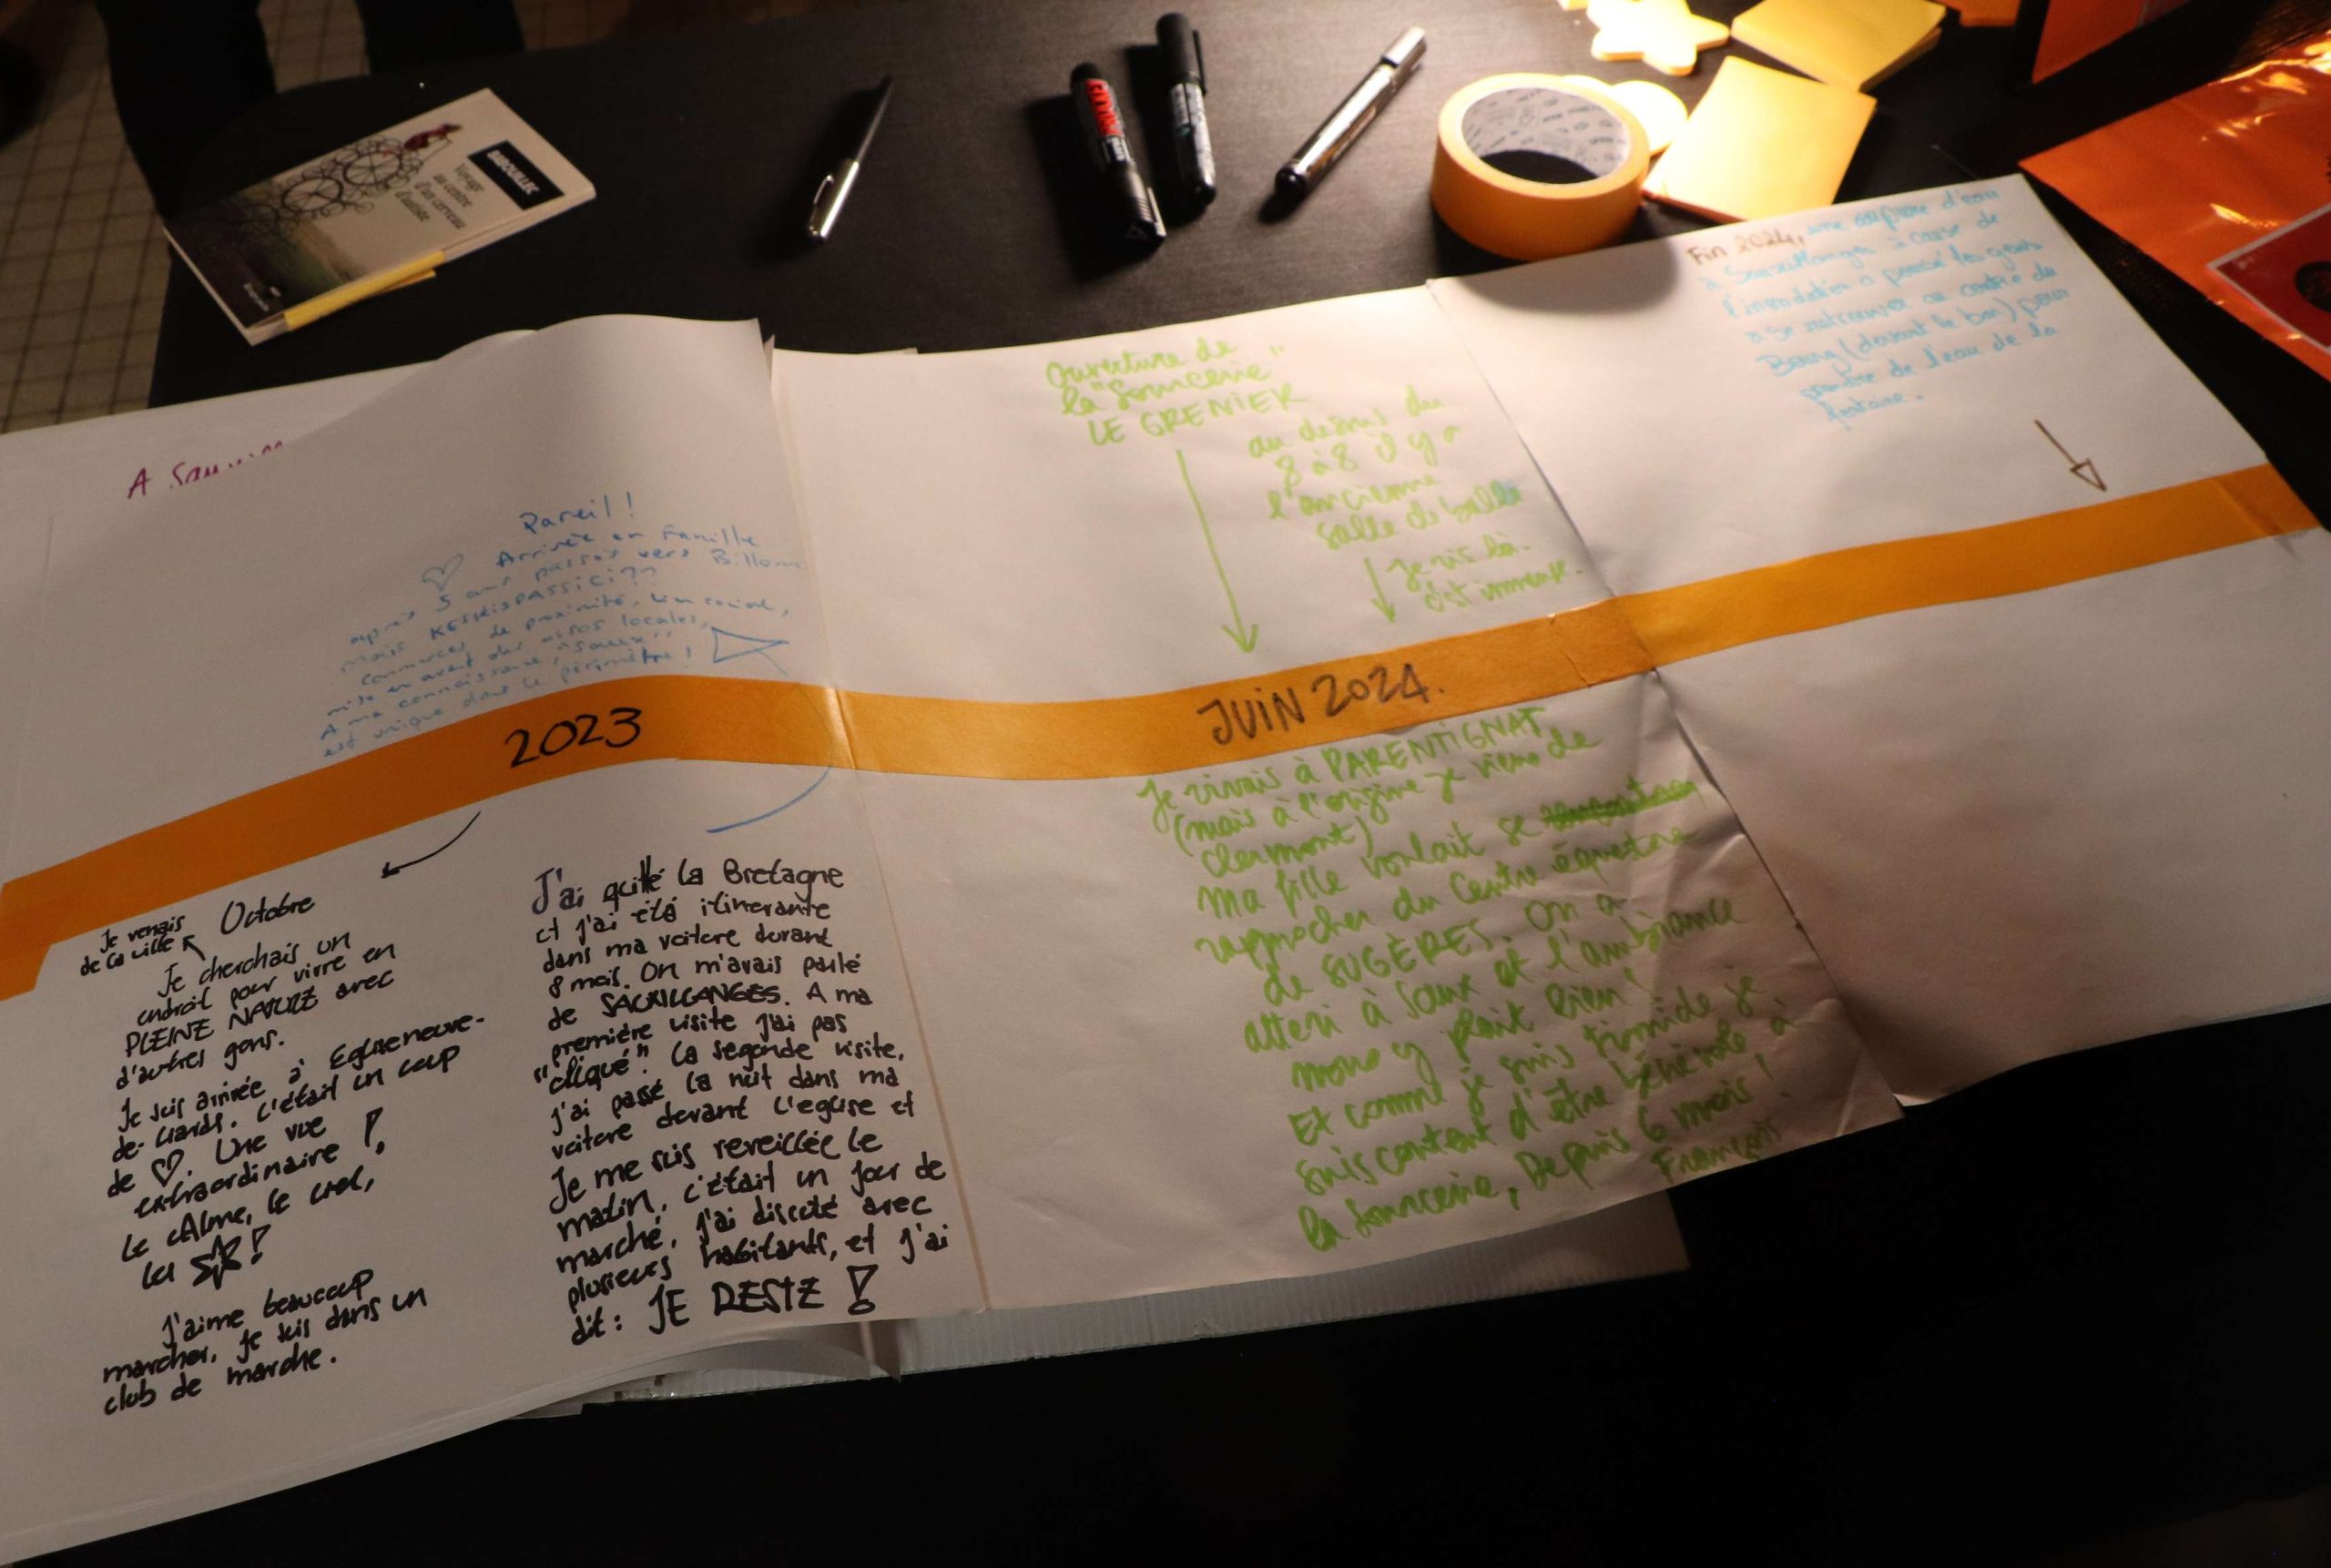 BAROUILLEC
Voyage
au centre
d'un cerveau
d'autiste
A Sauxi
Pareil !
♡ Arrivée en famille
après 5 ans passés vers Billom
mais KESKISPASSICI??
Commerces de proximité, lien social,
mise en avant des assos locales,
A ma connaissance, "Saux"
est unique dans le périmètre !
2023
Je venais
de la ville
Octobre
Je cherchais un
endroit pour vivre en
PLEINE NATURE avec
d'autres gens.
Je suis arrivée à Egliseneuve-
de-Liards. C'était un coup
de ♡. Une vue
extraordinaire !
Le cAlme, le ciel,
les ☆ !
J'aime beaucoup
marcher, je suis dans un
club de marche.
J'ai quitté la Bretagne
et j'ai été itinerante
dans ma voiture durant
8 mois. On m'avais parlé
de SAUXILLANGES. A ma
première visite j'ai pas
"cliqué". La segonde visite,
j'ai passé la nuit dans ma
voiture devant l'eglise et
Je me suis reveillée le
matin, c'était un jour de
marché, j'ai discuté avec
plusieurs habitants, et j'ai
dit : JE RESTE !
Ouverture de
la "Sourcerie"
LE GRENIER
au dessus du
8 à 8 il y a
l'ancienne
salle de balle
Je vis là.
c'est immense.
JUIN 2024.
Je vivais à PARENTIGNAT
(mais à l'origine je viens de
Clermont)
Ma fille voulait se
rapprocher du Centre équestre
de SUGÈRES. On a
atteri à Saux et l'ambiance
nous y plait bien !
Et comme je suis timide je
suis content d'être bénévole à
la Sourcerie, Depuis 6 mois !
François
Fin 2024, une coupure d'eau
à Sauxillanges à cause de
l'inondation a poussé les gens
à se retrouver au centre du
Bourg (devant le bar) pour
prendre de l'eau de la
fontaine.